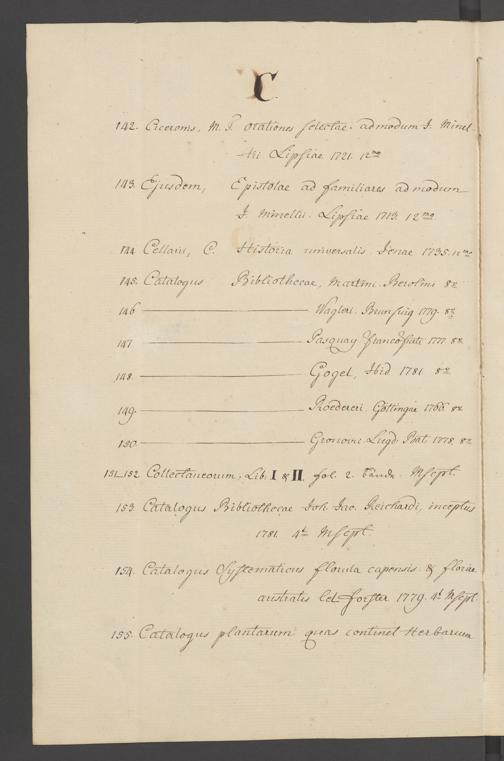 C
142. Ciceronis, M. T. orationes selectae. ad modum J. Minel-
lii. Lipsiae 1721. 12mo
143. Ejusdem, Epistolae ad familiares ad modum
J. Minellii. Lipsiae 1713. 12mo
144. Cellarii, C. Historia universalis. Jenae 1735. 12mo
145. Catalogus Bibliothecae, Martini. Berolini 8o
146 ——— Wagleri. Brunsvig 1779. 8o
147 ——— Pasquay. Francofurti 1777. 8o
148. ——— Gogel, Ibid 1781 8o
149. ——— Roedereri, Göttingae 1766 8o
150. ——— Gronovii Lugd. Bat. 1778. 8o
151.152. Collectaneorum, Lib. I & II. fol. 2. Bände. Mscpt.
153. Catalogus Bibliothecae Joh. Jac. Reichardi, inceptus
1781. 4to Mscpt.
154. Catalogus Systematicus florula capensis & florae
australis Forster 1779. 4to Mscpt
155. Catalogus plantarum quas continet Herbarium